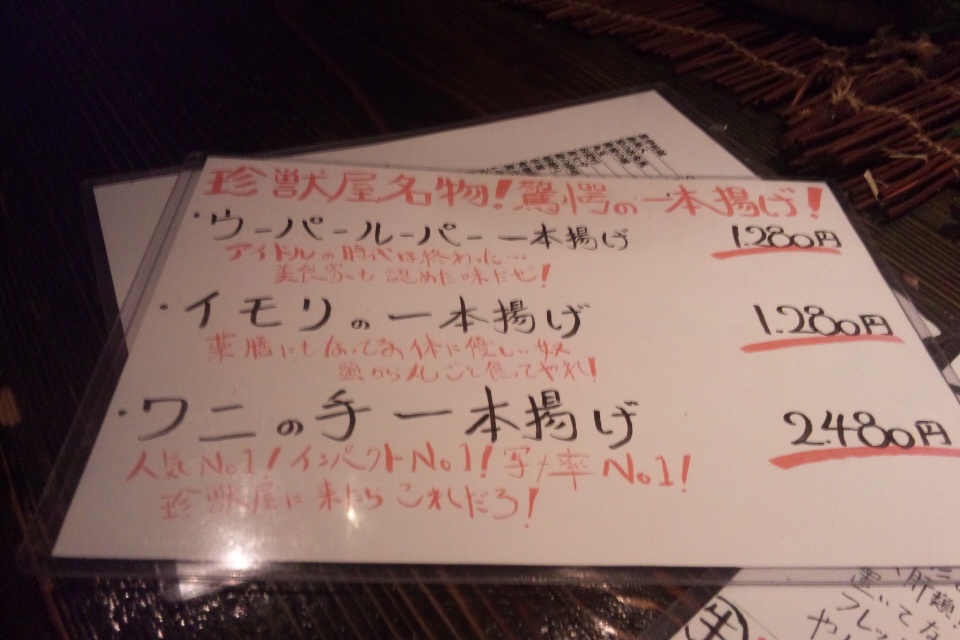 珍獣屋名物!驚愕の一本揚げ!
・ウーパールーパー一本揚げ 1.280円
アイドルの時代は終わった…
美食家も認めた味だぜ!
・イモリの一本揚げ 1.280円
薬膳にもなってる体に優しい奴
頭から丸ごと食ってやれ!
・ワニの手一本揚げ 2.480円
人気No1!インパクトNo1!写メ率No1!
珍獣屋に来たらこれしだろ!